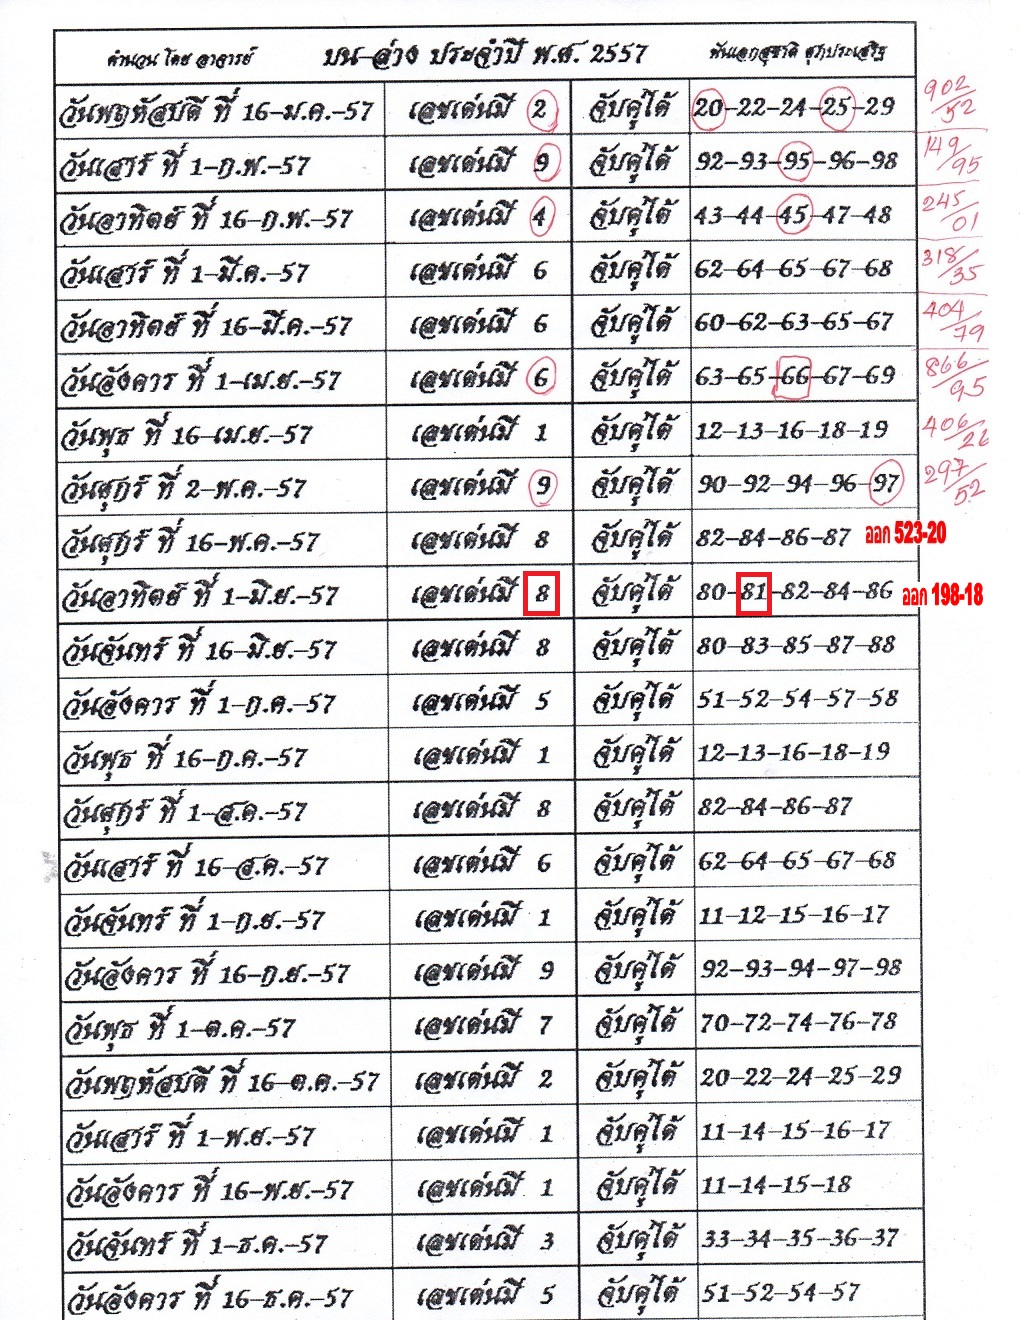 คำนวน โดย อาจารย์ บน-ล่าง ประจำปี พ.ศ. 2557 พันเอกสุชาติ สุภประเสริฐ
วันพฤหัสบดี ที่ 16-ม.ค.-57 เลขเด่นมี 2 จับคู่ได้ 20-22-24-25-29 902/52
วันเสาร์ ที่ 1-ก.พ.-57 เลขเด่นมี 9 จับคู่ได้ 92-93-95-96-98 149/95
วันอาทิตย์ ที่ 16-ก.พ.-57 เลขเด่นมี 4 จับคู่ได้ 43-44-45-47-48 245/01
วันเสาร์ ที่ 1-มี.ค.-57 เลขเด่นมี 6 จับคู่ได้ 62-64-65-67-68 318/35
วันอาทิตย์ ที่ 16-มี.ค.-57 เลขเด่นมี 6 จับคู่ได้ 60-62-63-65-67 404/79
วันอังคาร ที่ 1-เม.ย.-57 เลขเด่นมี 6 จับคู่ได้ 63-65-66-67-69 866/95
วันพุธ ที่ 16-เม.ย.-57 เลขเด่นมี 1 จับคู่ได้ 12-13-16-18-19 406/
วันศุกร์ ที่ 2-พ.ค.-57 เลขเด่นมี 9 จับคู่ได้ 90-92-94-96-97 297/52
วันศุกร์ ที่ 16-พ.ค.-57 เลขเด่นมี 8 จับคู่ได้ 82-84-86-87 ออก 523-20
วันอาทิตย์ ที่ 1-มิ.ย.-57 เลขเด่นมี 8 จับคู่ได้ 80-81-82-84-86 ออก 198-18
วันจันทร์ ที่ 16-มิ.ย.-57 เลขเด่นมี 8 จับคู่ได้ 80-83-85-87-88
วันอังคาร ที่ 1-ก.ค.-57 เลขเด่นมี 5 จับคู่ได้ 51-52-54-57-58
วันพุธ ที่ 16-ก.ค.-57 เลขเด่นมี 1 จับคู่ได้ 12-13-16-18-19
วันศุกร์ ที่ 1-ส.ค.-57 เลขเด่นมี 8 จับคู่ได้ 82-84-86-87
วันเสาร์ ที่ 16-ส.ค.-57 เลขเด่นมี 6 จับคู่ได้ 62-64-65-67-68
วันจันทร์ ที่ 1-ก.ย.-57 เลขเด่นมี 1 จับคู่ได้ 11-12-15-16-17
วันอังคาร ที่ 16-ก.ย.-57 เลขเด่นมี 9 จับคู่ได้ 92-93-94-97-98
วันพุธ ที่ 1-ต.ค.-57 เลขเด่นมี 7 จับคู่ได้ 70-72-74-76-78
วันพฤหัสบดี ที่ 16-ต.ค.-57 เลขเด่นมี 2 จับคู่ได้ 20-22-24-25-29
วันเสาร์ ที่ 1-พ.ย.-57 เลขเด่นมี 1 จับคู่ได้ 11-14-15-16-17
วันอังคาร ที่ 16-พ.ย.-57 เลขเด่นมี 1 จับคู่ได้ 11-14-15-18
วันจันทร์ ที่ 1-ธ.ค.-57 เลขเด่นมี 3 จับคู่ได้ 33-34-35-36-37
วันอังคาร ที่ 16-ธ.ค.-57 เลขเด่นมี 5 จับคู่ได้ 51-52-54-57